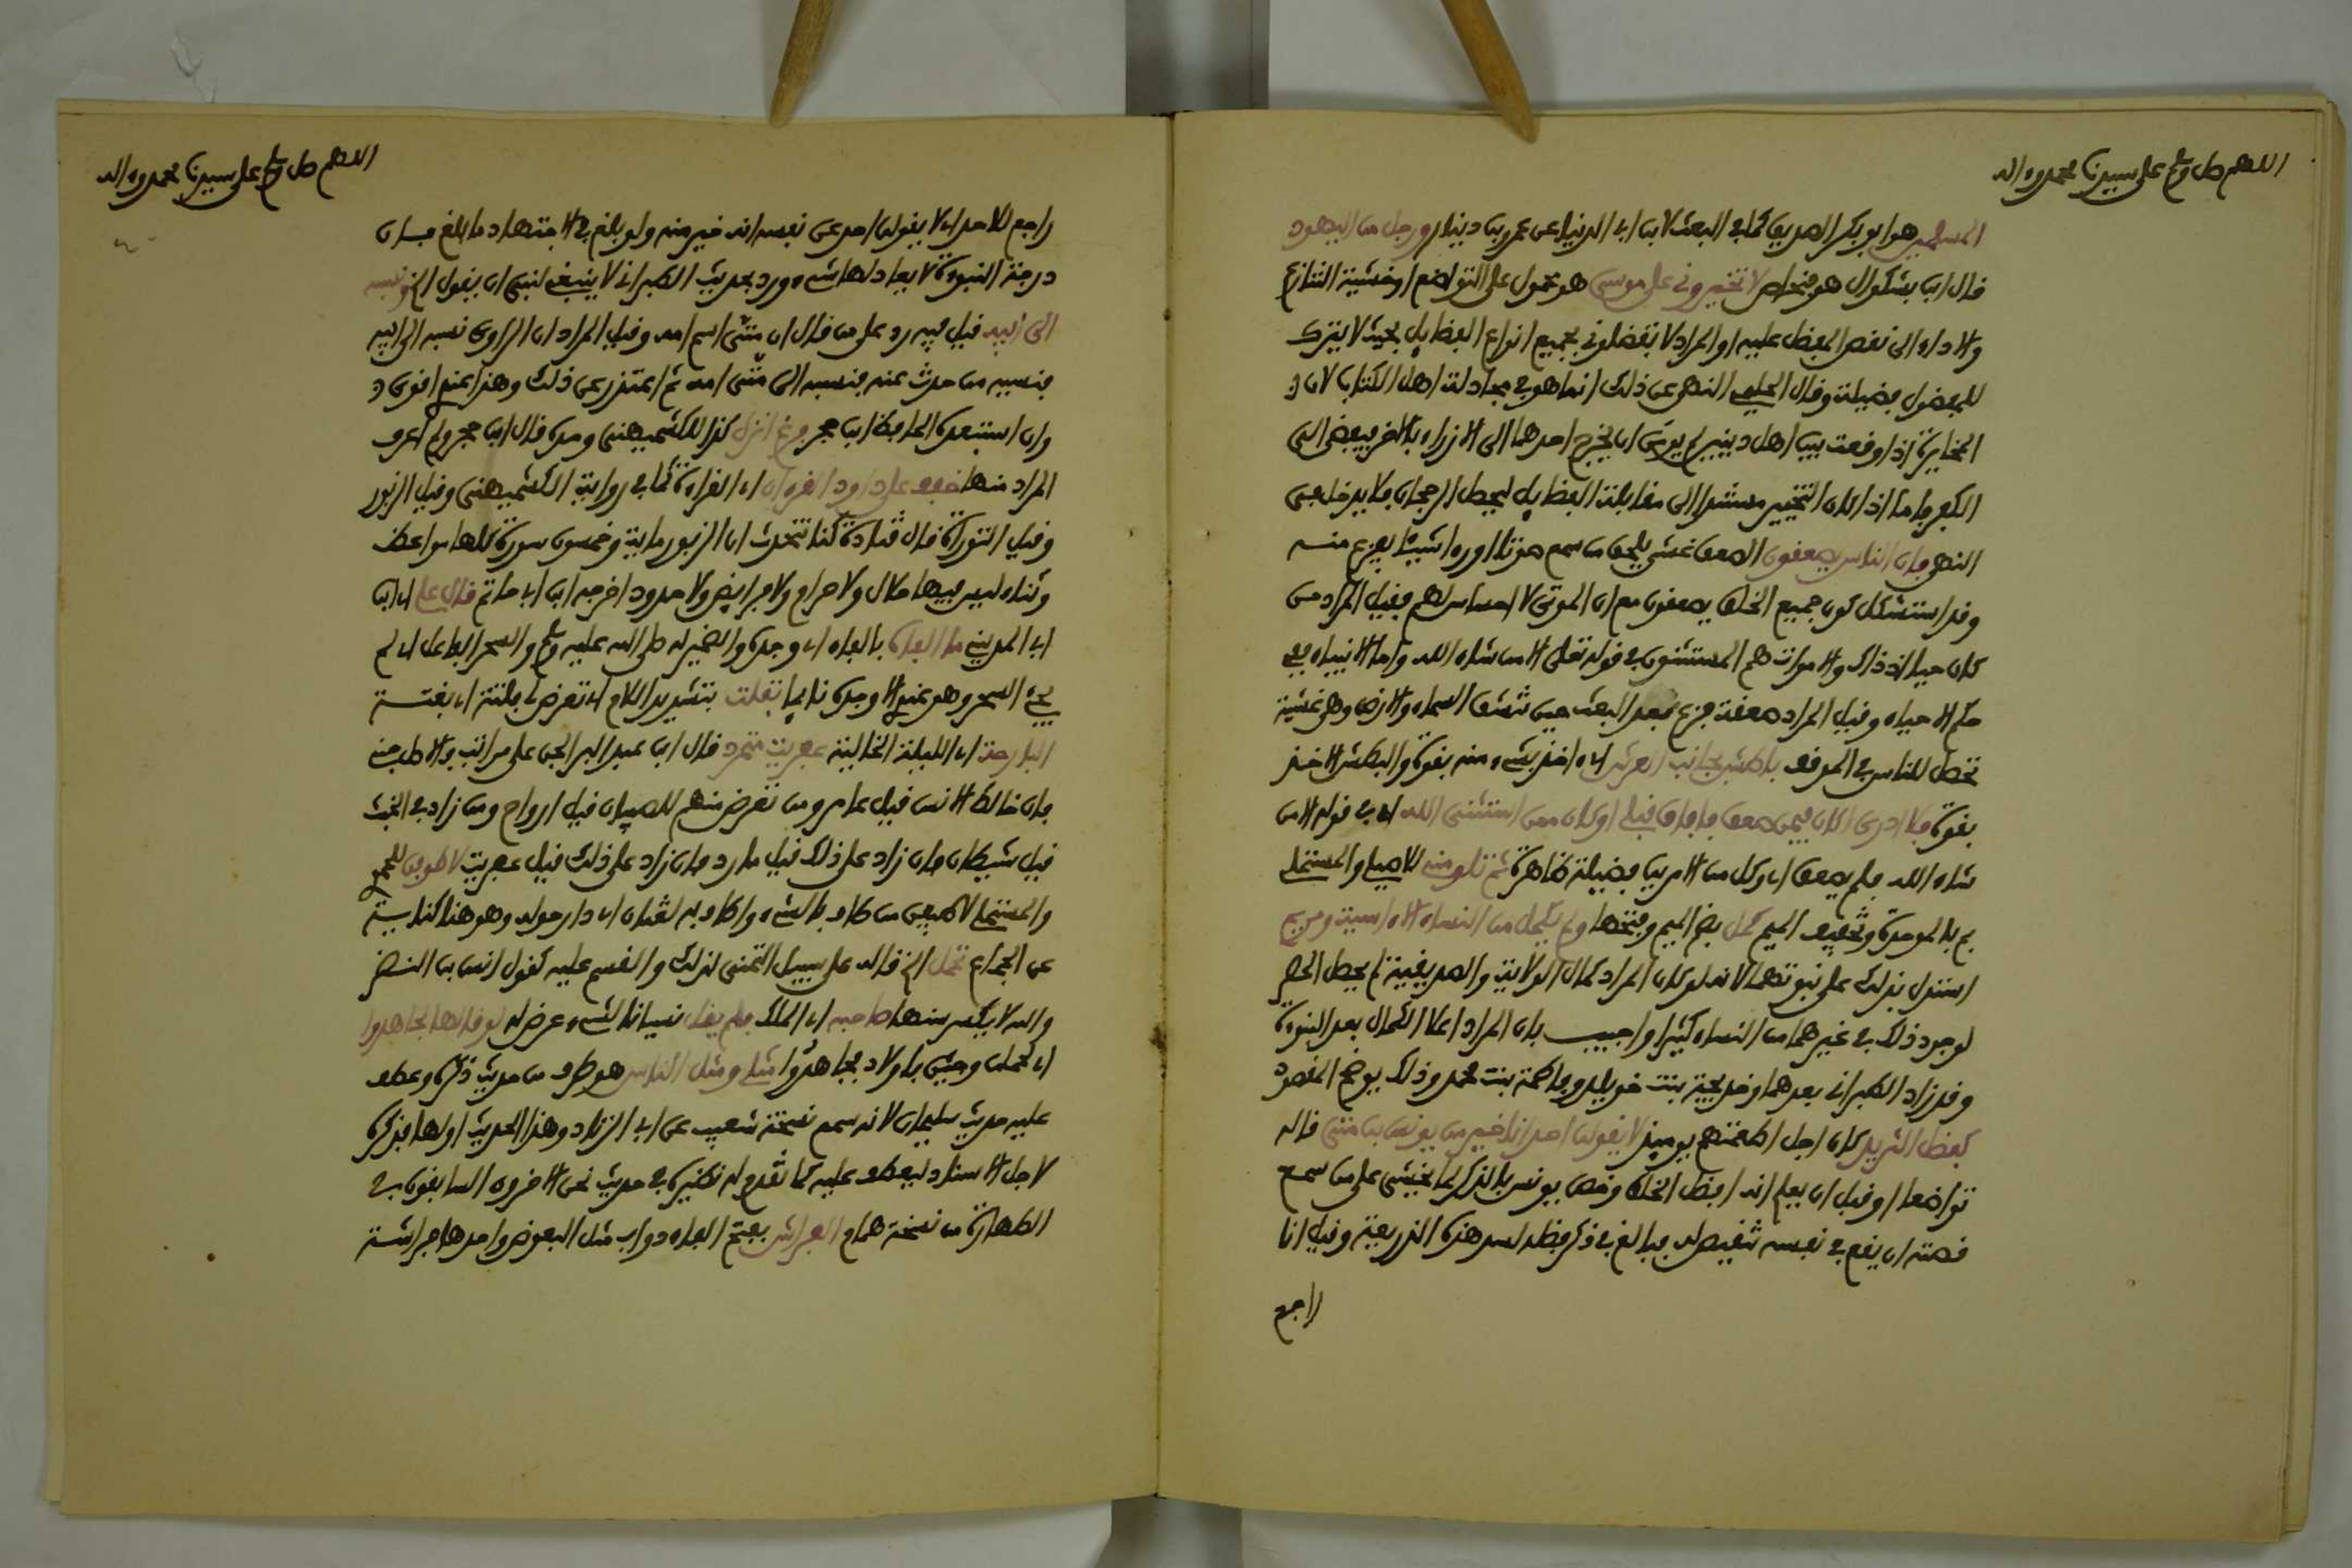 اللهم صل وسلم على سيدنا محمد وءاله
المسلمين هو ابو بكر الصديق كما في البعث لابن ابي الدنيا عن عمرو بن دينار ورجل من اليهود
قال ابن بشكوال هو فنحاص لا تخيروني على موسى هو محمول على التواضع او خشية التنازع
والاداء الى نقص المفضل عليه او المراد لا تفضلوني بجميع انواع الفضايل بحيث لا يترك
للمفضول فضيلة وقال الحليمي النهي عن ذلك انما هو في مجادلة اهل الكتاب لان
المخايرة اذا وقعت بين اهل دينين لم يومن ان يخرج احدهما الى الازراء بالاخر فيفضي الى
الكفر فاما اذا كان التخيير مستندا الى مقابلة الفضايل ليحصل الرجحان فلا يدخل في
النهي فان الناس يصعقون الصعق غشي يلحق من سمع صوتا او رءا شيئا يفزع منه
وقد استشكل كون جميع الخلق يصعقون مع ان الموتى لا احساس لهم فقيل المراد من
كان حيا اذ ذاك والاموات هم المستثنون في قوله تعلى الا من شاء الله واما الانبياء ففي
حكم الاحياء وقيل المراد صعقة فزع بعد البعث حين تنشق السماء والارض وهي غشية
تحصل للناس في الموقف باطش بجانب العرش اي اخذ بشيء منه بقوة والبطش الاخذ
بقوة فلا ادري اكان فيمن صعق فافاق قبلي او كان ممن استثنى الله اي في قوله الا من
شاء الله فلم يصعق اي وكل من الامرين فضيلة ظاهرة ثم تلومني للاصيلي والمستملي
بم بالموحدة وتخفيف الميم كمل بضم الميم وفتحها ولم يكمل من النساء الا ءاسية ومريم
استدل بذلك على نبوتهما لانه لو كان المراد كمال الولاية والصديقية لم يحصل الحصر
لوجود ذلك في غيرهما من النساء كثيرا واجيب بان المراد اعلا الكمال بعد النبوة
وقد زاد الطبراني بعدهما وخديجة بنت خويلد وفاطمة بنت محمد وذلك يوضح المقصود
كفضل الثريد كان اجل اطعمتهم يوميذ لا يقولن احد انا خير من يونس بن متى قاله
تواضعا او قبل ان يعلم انه افضل الخلق وخص يونس بالذكر لما يخشى على من سمع
قصته ان يقع في نفسه تنقيص له فبالغ في ذكر فضله لسد هذه الذريعة وقيل انا
راجع
اللهم صل وسلم على سيدنا محمد وءاله
راجع للاحد اي لا يقولن احد عن نفسه انه خير منه ولو بلغ في الاجتهاد ما بلغ فان
درجة النبوة لا يعادلها شيء وورد بحديث الطبراني لا ينبغي لنبي ان يقول الخ ونسبه
الى ابيه قيل فيه رد على من قال ان متى اسم امه وقيل المراد ان الراوي نسبه الى ابيه
فنسيه من حدث عنه فنسبه الى متى امه ثم اعتذر عن ذلك وهذا عندي اقوى
وان استبعده الحافظ ابن حجر كذا للكشميهني وحده قال ابن حجر ولم اعرف
المراد منها خفف على داود القرءان اي القراءة كما في رواية الكشميهني وقيل الزبور
وقيل التوراة قال قتادة كنا نتحدث ان الزبور ماية وخمسون سورة كلها مواعظ
وثناء ليس فيها حلال ولا حرام ولا فرايض ولا حدود اخرجه ابن ابي حاتم قال علي اي ابن
ابي المديني ما الفاه بالفاء اي وجده والضمير له صلى الله عليه وسلم والسحر الفاعل اي لم
يجيء السحر وهو عندي الا وجده نايما تفلت بتشديد اللام اي تعرض لي فلتة اي بغتة
البارحة اي الليلة الخالية عفريت متمرد قال ابن عبد البر الجن على مراتب فالاصل جني
فان خالط الانس قيل عامر ومن تعرض منهم للصبيان قيل ارواح ومن زاد في الخبث
قيل شيطان فان زاد على ذلك قيل مارد فان زاد على ذلك قيل عفريت لاطوفن للحموي
والمستملي لاطيفن من طاف بالشيء واطاف به لغتان اي دار حوله وهو هنا كناية
عن الجماع تحمل الخ قاله على سبيل التمني لذلك والقسم عليه كقول انس بن النضر
والله لا يكسر سنها صاحبه اي الملك فلم يقل نسيانا لشيء عرض له لو قالها لجاهدوا
اي لحملن وجيئن باولاد فجاهدوا مثلي ومثل الناس هو طرف من حديث ذكره وعطف
عليه حديث سليمان لانه سمع نسخة شعيب عن ابي الزناد وهذا الحديث اولها فذكره
لاجل الاسناد ليعطف عليه كما تقدم له نظيره في حديث نحن الاخرون السابقون في
الطهارة من نسخة همام الفراش بفتح الفاء دواب مثل البعوض واحدها فراشة